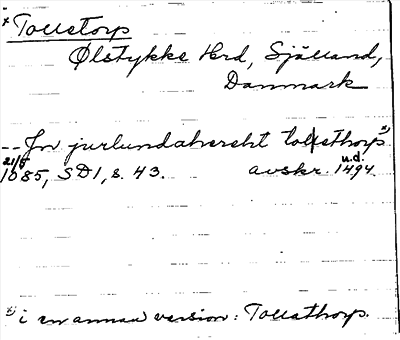 * Tolletorp
Ølstykke Hrd, Själland,
Danmark
-- Jn jurlundahereht tolfsthorp. x)
21/5
1085, SD 1, s. 43. avskr. u.d. 1494.
x) i en annan version: Tollathorp.